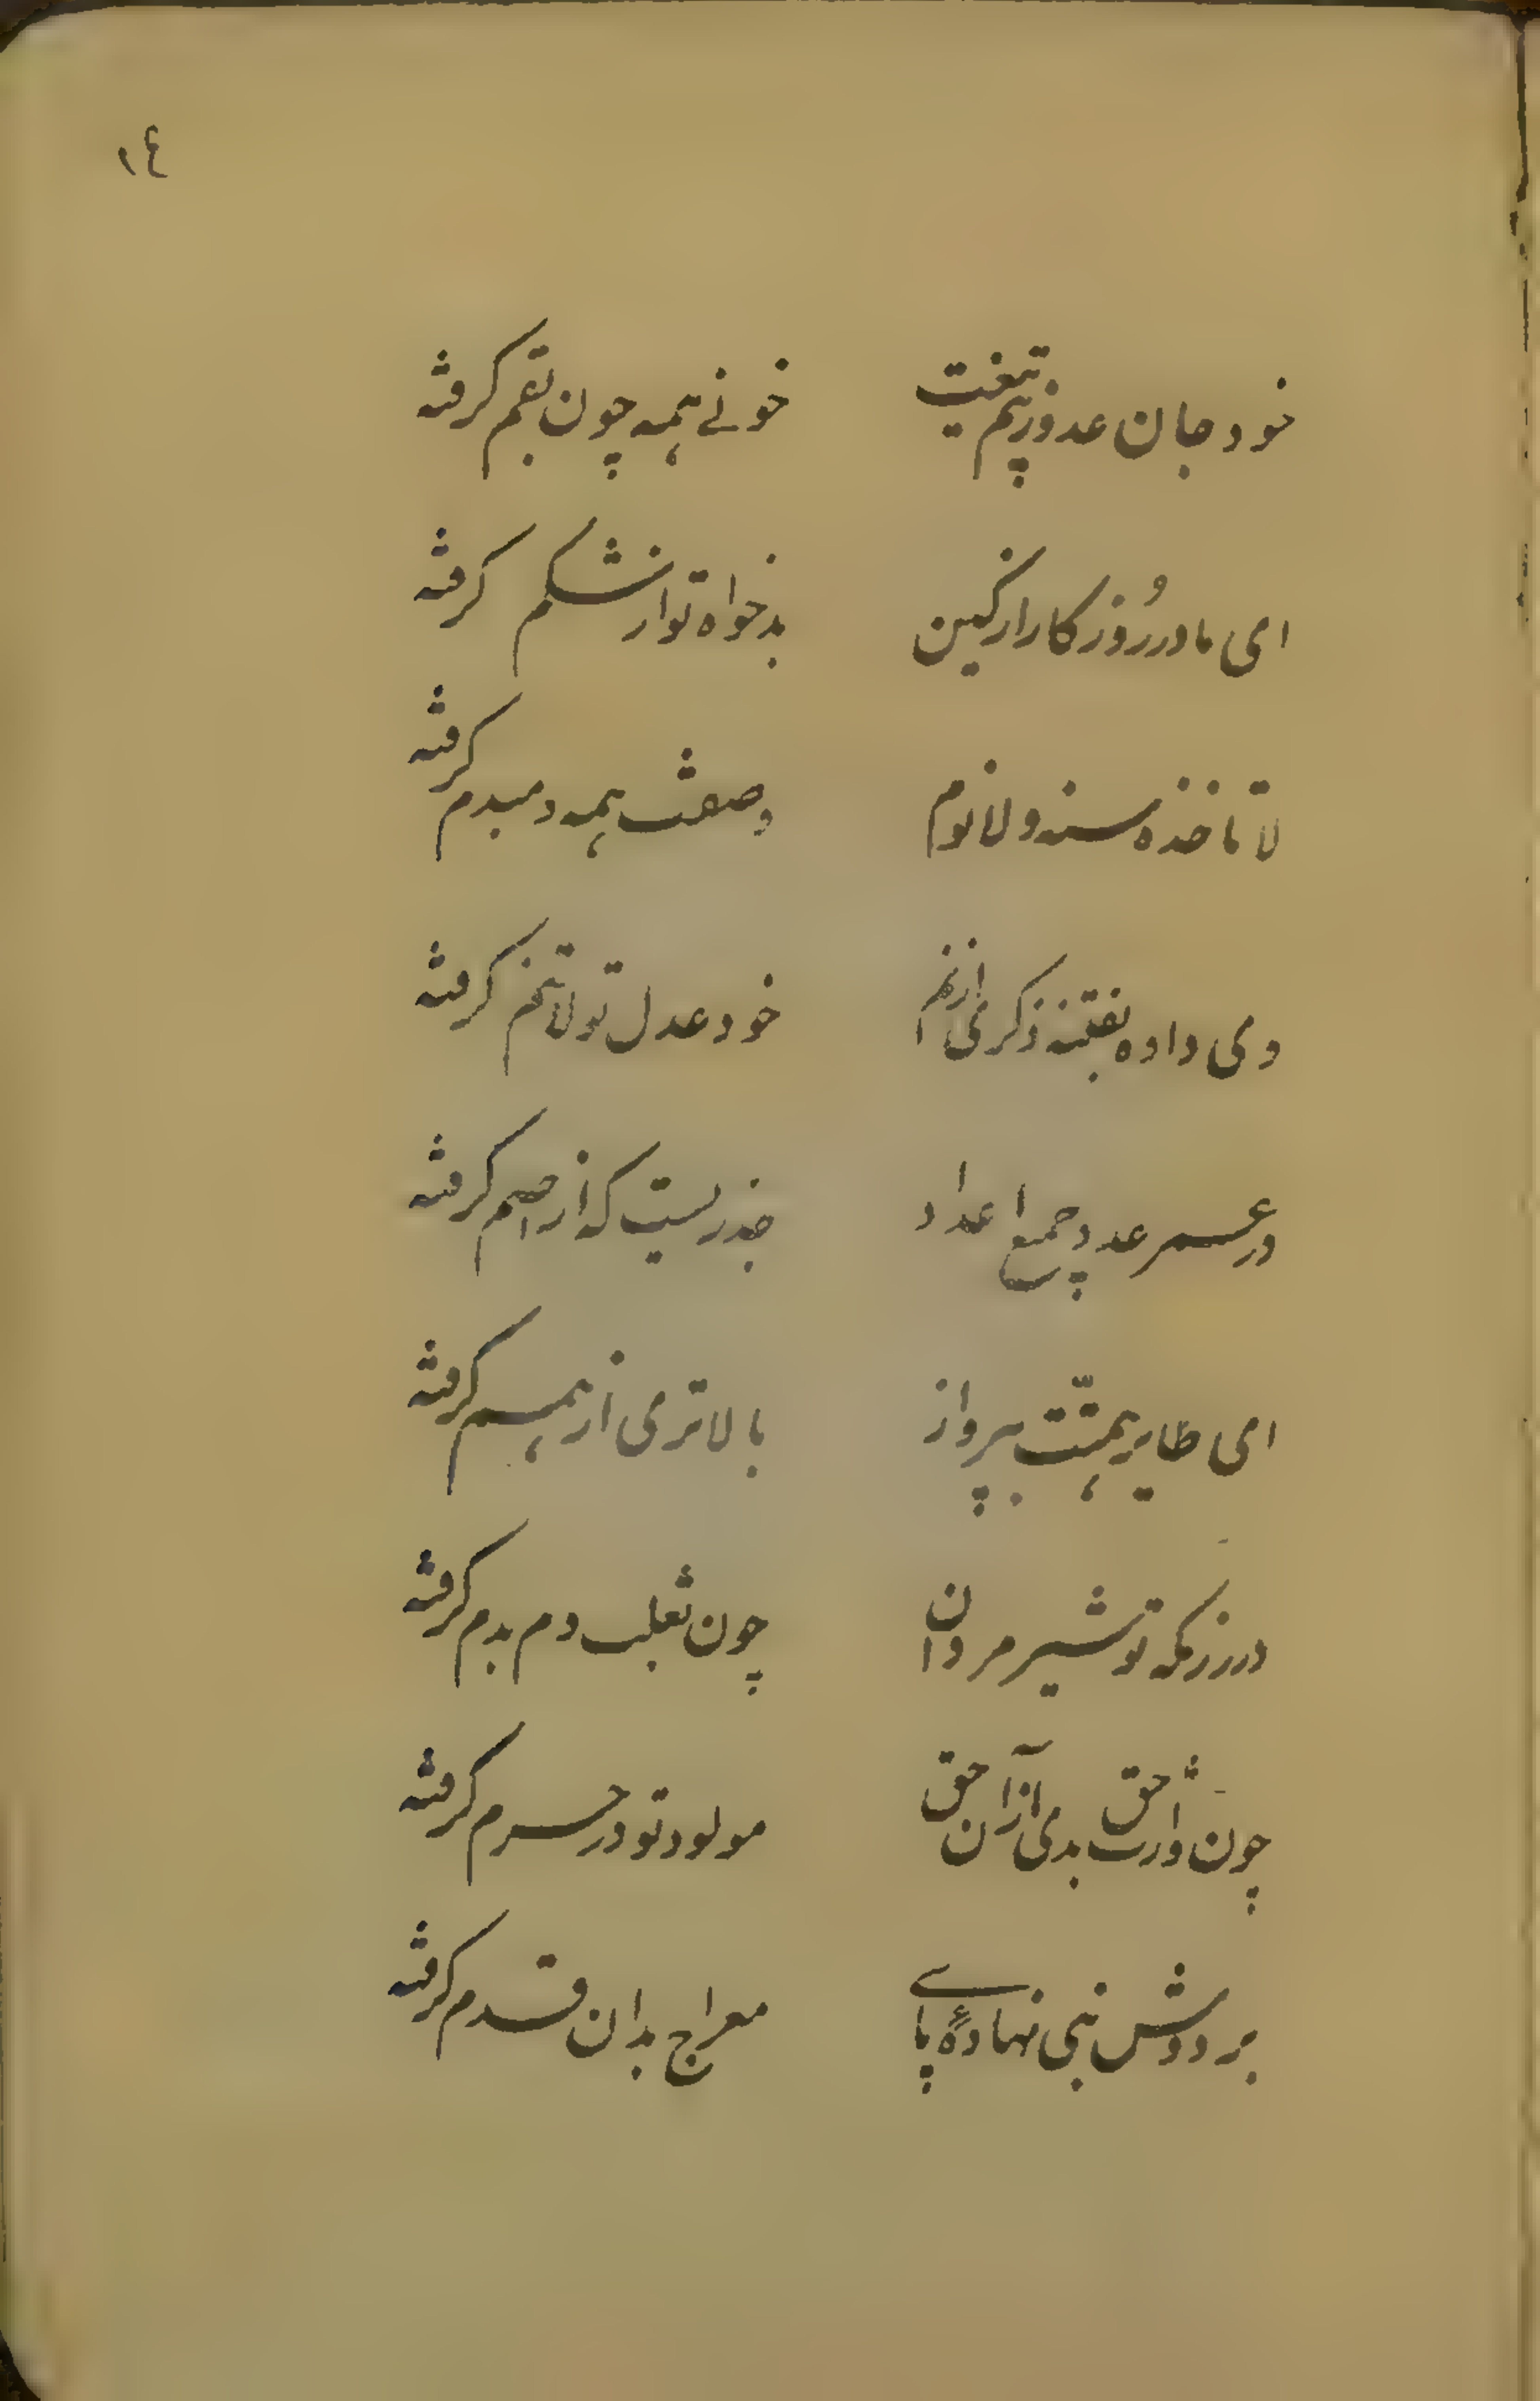 ١٤
خود جان عدو ز بیم تیغت خونے همه چون بقم کرفته
ای مادر رُوزکار از کین بدخواه تو از شکم کرفته
لا تاخذه سنه و لا نوم وصفت همه دمبدم کرفته
وی داده بفتنه ذکری از خود عدل تو کرفته
در عدد جمع اعداد جذریست که از اصم کرفته
ای طایر همّت بپرواز بالاتری از همم کرفته
در رزمکه تو شیر مردان چون ثعلب دم بدم کرفته
چون وارث حق بدی از آن حق مولود تو در حرم کرفته
بر دوش نبی نهادهٔ پاے معراج بدان قدم کرفته